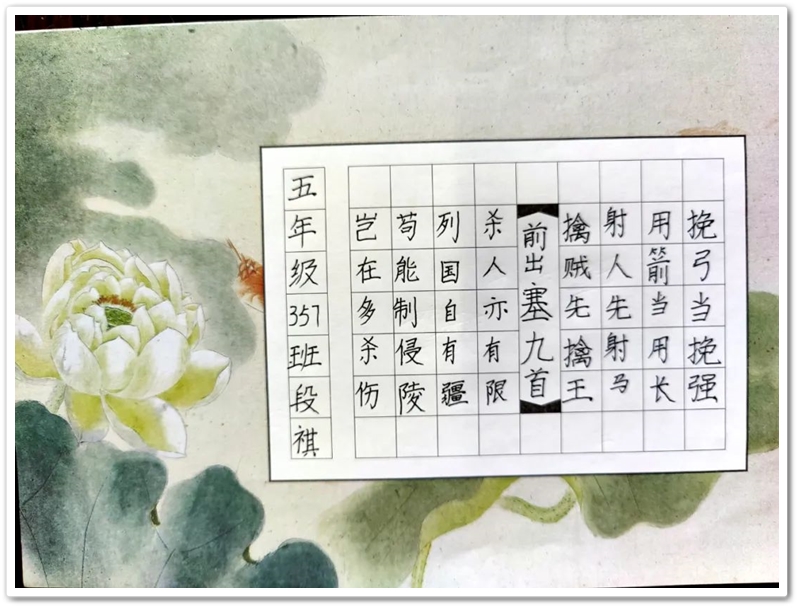 挽弓当挽强
用箭当用长
射人先射马
擒贼先擒王
前出塞九首
杀人亦有限
列国自有疆
苟能制侵陵
岂在多杀伤
五年级357班段祺